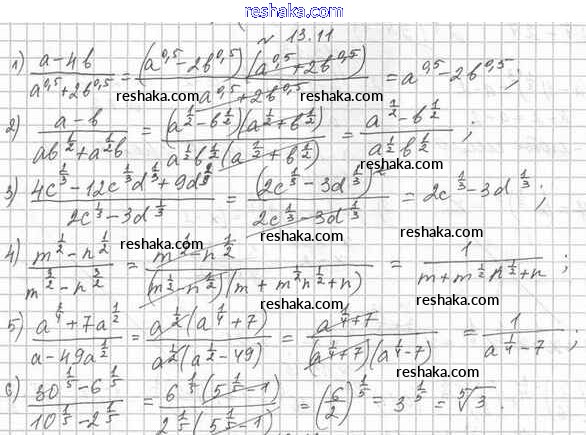 reshaka.com
№ 13.11
1) (a-4b)/(a^0,5+2b^0,5) = ((a^0,5-2b^0,5)(a^0,5+2b^0,5))/(a^0,5+2b^0,5) = a^0,5-2b^0,5;
reshaka.com reshaka.com
2) (a-b)/(ab^(1/2)+a^(1/2)b) = ((a^(1/2)-b^(1/2))(a^(1/2)+b^(1/2)))/(a^(1/2)b^(1/2)(a^(1/2)+b^(1/2))) = (a^(1/2)-b^(1/2))/(a^(1/2)b^(1/2));
reshaka.com
3) (4c^(1/3)-12c^(1/3)d^(1/3)+9d^(2/3))/(2c^(1/3)-3d^(1/3)) = (2c^(1/3)-3d^(1/3))^2/(2c^(1/3)-3d^(1/3)) = 2c^(1/3)-3d^(1/3);
reshaka.com reshaka.com
4) (m^(1/2)-n^(1/2))/(m^(3/2)-n^(3/2)) = (m^(1/2)-n^(1/2))/((m^(1/2)-n^(1/2))(m+m^(1/2)n^(1/2)+n)) = 1/(m+m^(1/2)n^(1/2)+n)
reshaka.com
5) (a^(1/4)+7a^(1/2))/(a-49a^(1/2)) = (a^(1/2)(a^(1/4)+7))/(a^(1/2)(a^(1/2)-49)) = (a^(1/4)+7)/((a^(1/4)+7)(a^(1/4)-7)) = 1/(a^(1/4)-7);
reshaka.com reshaka.com
6) (30^(1/5)-6^(1/5))/(10^(1/5)-2^(1/5)) = (6^(1/5)(5^(1/5)-1))/(2^(1/5)(5^(1/5)-1)) = (6/2)^(1/5) = 3^(1/5) = ⁵√3.
reshaka.com